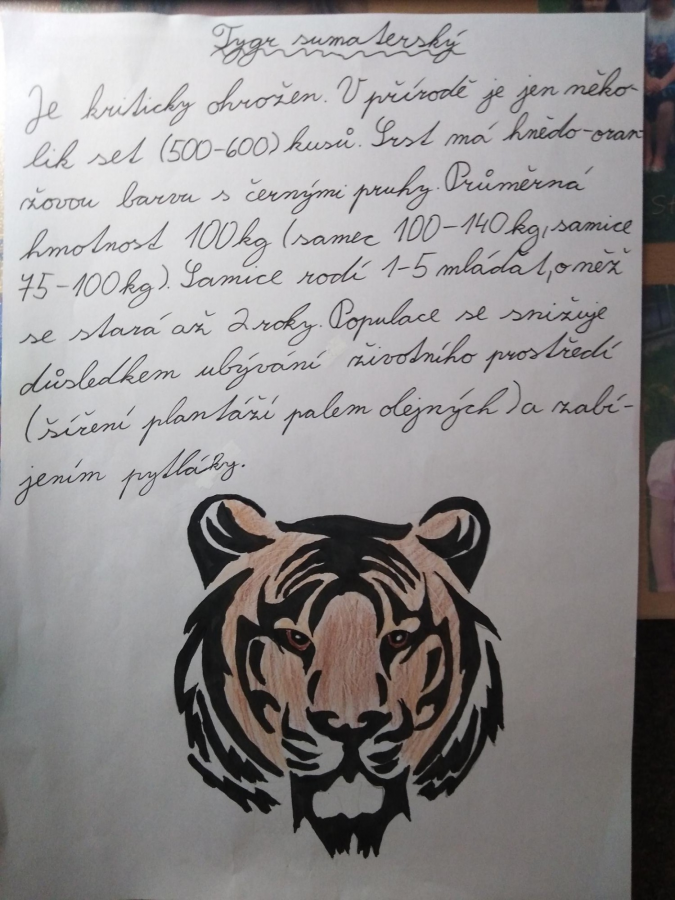 Tygr sumaterský
Je kriticky ohrožen. V přírodě je jen něko-
lik set (500-600) kusů. Srst má hnědo-oran-
žovou barvu s černými pruhy. Průměrná
hmotnost 100kg (samec 100-140kg, samice
75-100kg). Samice rodí 1-5 mláďat, o něž
se stará až 2 roky. Populace se snižuje
důsledkem ubývání životního prostředí
(šíření plantáží palem olejných) a zabí-
jením pytláky.
St